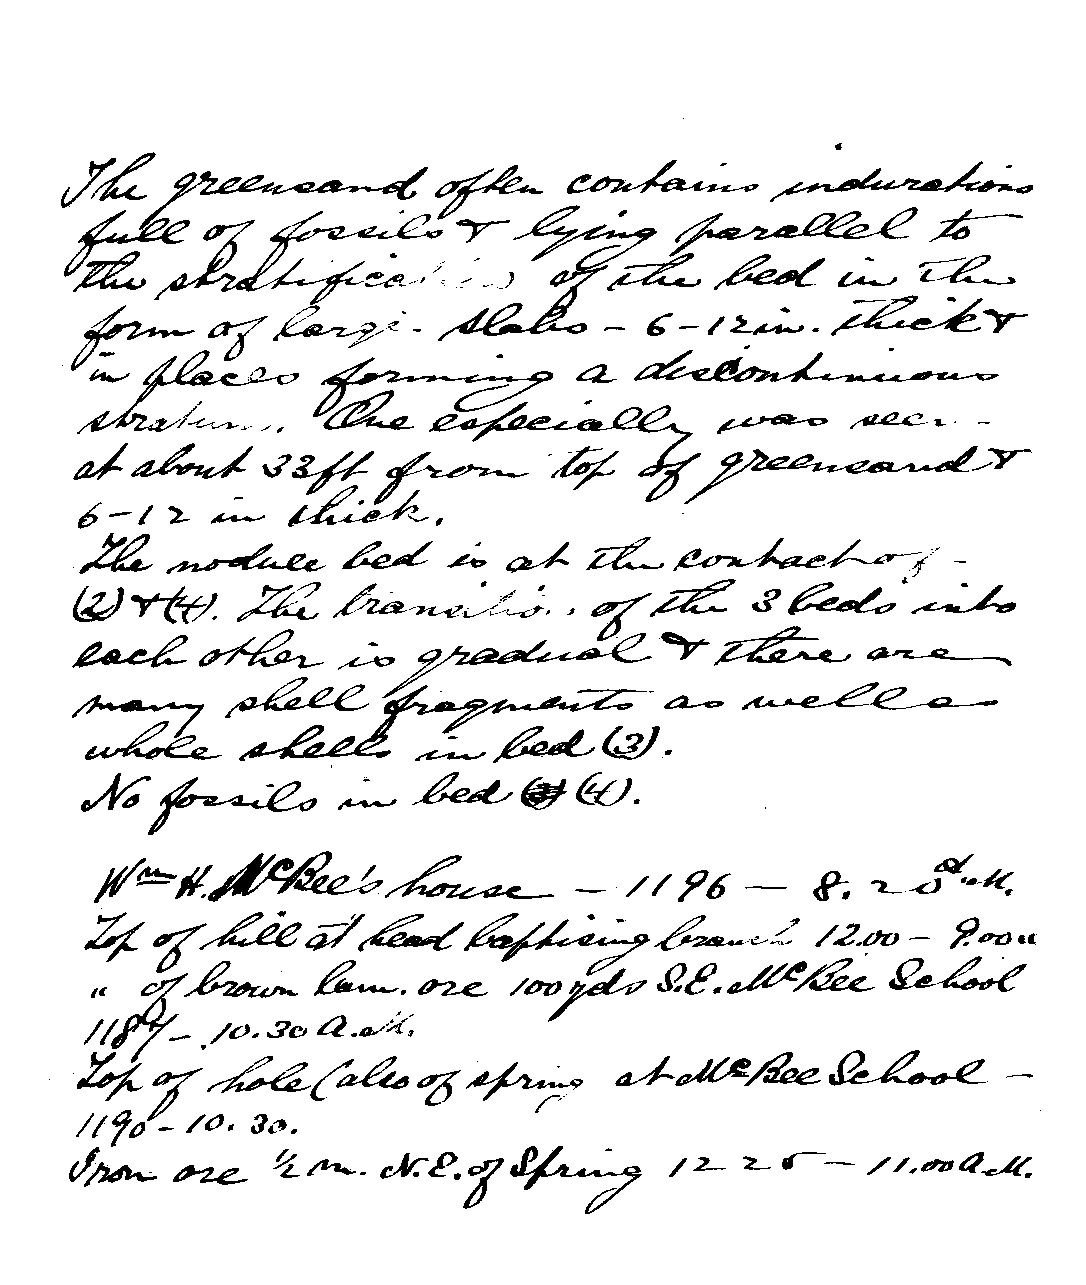 The greensand often contains indurations
full of fossils & lying parallel to
the stratification of the bed in the
form of large slabs - 6-12 in. thick &
in places forming a discontinuous
stratum. One especially was seen
at about 33 ft from top of greensand &
6-12 in thick.
The nodule bed is at the contact of
(2) & (4). The transition of the 3 beds into
each other is gradual & there are
many shell fragments as well as
whole shells in bed (3).
No fossils in bed (4).
Wm H. McBee's house - 1196 - 8.20 A.M.
Top of hill at head baptising branch 12.00 - 9.00 a
" of brown lam. ore 100 yds S.E. McBee School
1187 - 10.30 A.M.
Top of hole (also of spring at McBee School -
1190 - 10.30.
Iron ore 1/2 m. N.E. of Spring 1225 - 11.00 A.M.